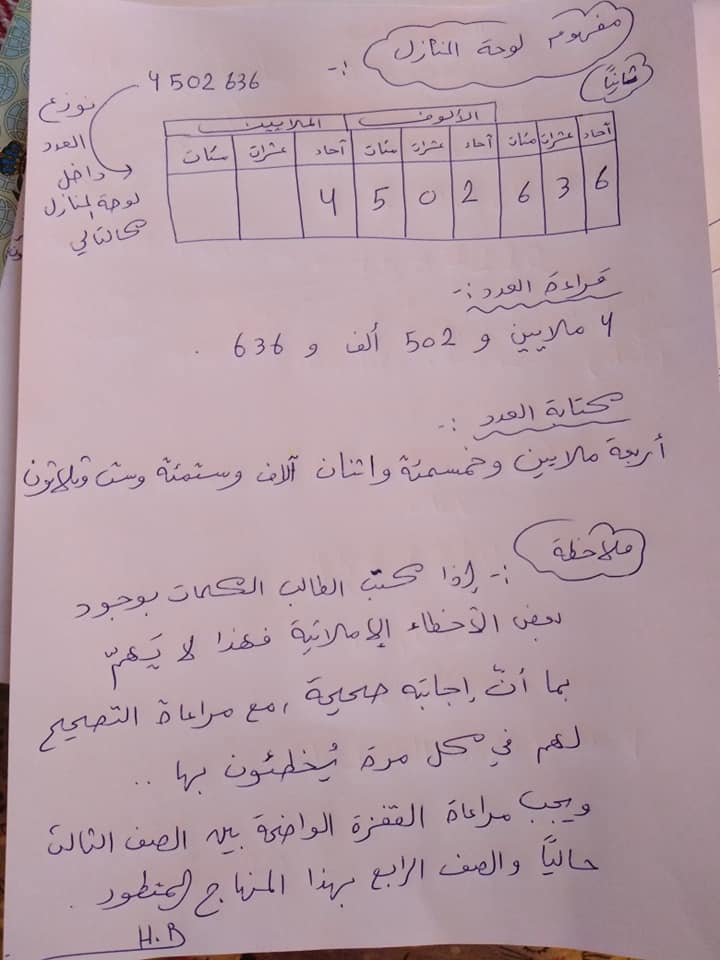 مفهوم لوحة المنازل :-
ثانياً
4 502 636
نوزع
العدد
داخل
لوحة المنازل
كالتالي
الألوف الملايين
آحاد عشرات مئات آحاد عشرات مئات آحاد عشرات مئات
6 3 6 2 0 5 4
قراءة العدد :-
4 ملايين و 502 ألف و 636 .
كتابة العدد :-
أربعة ملايين وخمسمئة واثنان آلاف وستمئة وست وثلاثون
ملاحظة :- إذا كتب الطالب الكلمات بوجود
بعض الأخطاء الإملائية فهذا لا يَهمّ
بما أنّ إجابته صحيحة ، مع مراعاة التصحيح
لهم في كل مرة يُخطئون بها ..
ويجب مراعاة القفزة الواضحة بين الصف الثالث
حالياً والصف الرابع بهذا المنهاج المتطور .
H.B